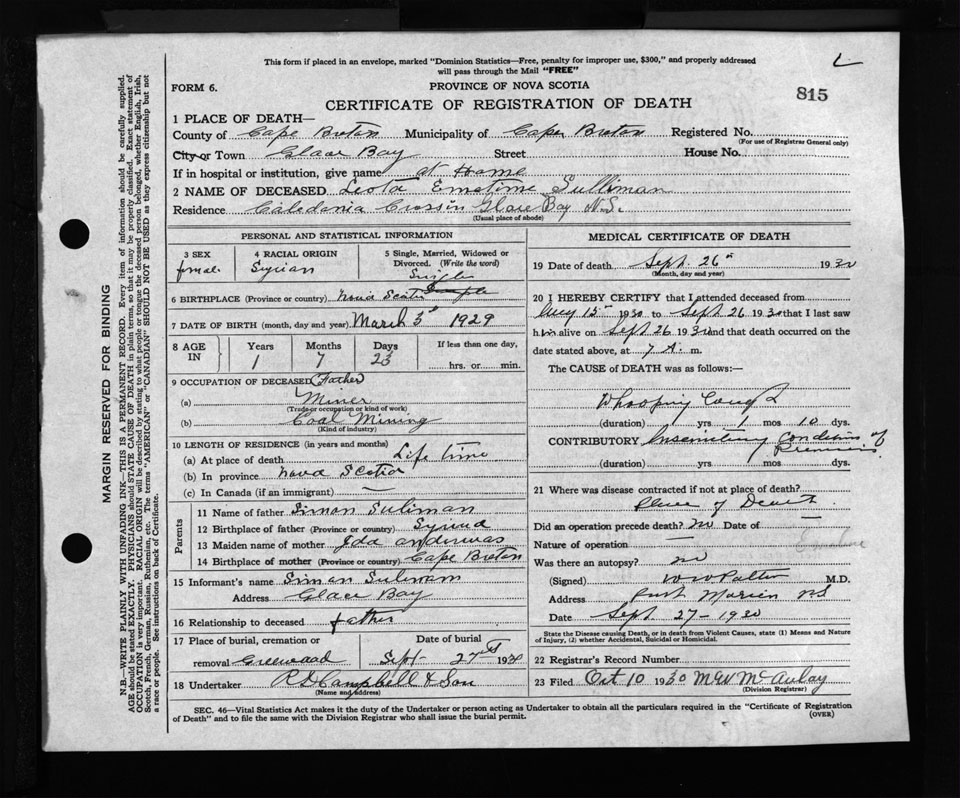 L
This form if placed in an envelope, marked "Dominion Statistics—Free, penalty for improper use, $300," and properly addressed
will pass through the Mail "FREE"
FORM 6.
PROVINCE OF NOVA SCOTIA
815
CERTIFICATE OF REGISTRATION OF DEATH
1 PLACE OF DEATH—
County of Cape Breton Municipality of Cape Breton Registered No.
(For use of Registrar General only)
City or Town Glace Bay Street House No.
If in hospital or institution, give name at Home
2 NAME OF DECEASED Leota Ernetine Sulliman
Residence Caledonia Crossin Glace Bay N.S.
(Usual place of abode)
PERSONAL AND STATISTICAL INFORMATION
3 SEX 4 RACIAL ORIGIN 5 Single, Married, Widowed or
Divorced. (Write the word)
femal. Syrian Single
6 BIRTHPLACE (Province or country) Nova Scotia
7 DATE OF BIRTH (month, day and year) March 3 1929
8 AGE IN Years Months Days If less than one day,
1 7 23 hrs. or min.
9 OCCUPATION OF DECEASED (Father
(a) Miner
(Trade or occupation or kind of work)
(b) Coal Mining
(Kind of industry)
10 LENGTH OF RESIDENCE (in years and months)
(a) At place of death Life time
(b) In province Nova Scotia
(c) In Canada (if an immigrant) —
Parents
11 Name of father Simon Suliman
12 Birthplace of father (Province or country)
13 Maiden name of mother Ida
14 Birthplace of mother (Province or country) Cape Breton
15 Informant's name Siman
Address Glace Bay
16 Relationship to deceased father
17 Place of burial, cremation or Date of burial
removal Greenwood Sept 27 1930
18 Undertaker R D Campbell & Son
(Name and address)
MEDICAL CERTIFICATE OF DEATH
19 Date of death Sept. 26 1930
(Month, day and year)
20 I HEREBY CERTIFY that I attended deceased from
Aug 15 1930 to Sept 26 1930 that I last saw
h alive on Sept 26 1930 and that death occurred on
date stated above, at 7 A. m.
The CAUSE of DEATH was as follows:—
Whooping Cough
(duration) yrs 1 mos 10 dys.
CONTRIBUTORY
(duration) yrs mos dys.
21 Where was disease contracted if not at place of death?
Place of Death
Did an operation precede death? no Date of —
Nature of operation —
Was there an autopsy? no
(Signed) W W Patton M.D.
Address Port Morien NS
Date Sept. 27-1930
State the Disease causing Death, or in death from Violent Causes, state (1) Means and Nature
of Injury, (2) whether Accidental, Suicidal or Homicidal.
22 Registrar's Record Number
23 Filed Oct 10 1930 M W McAulay
(Division Registrar)
SEC. 46—Vital Statistics Act makes it the duty of the Undertaker or person acting as Undertaker to obtain all the particulars required in the "Certificate of Registration
of Death" and to file the same with the Division Registrar who shall issue the burial permit.
(OVER)
MARGIN RESERVED FOR BINDING
N.B.—WRITE PLAINLY WITH UNFADING INK—THIS IS A PERMANENT RECORD. Every item of information should be carefully supplied.
AGE should be stated EXACTLY. PHYSICIANS should STATE CAUSE OF DEATH in plain terms, so that it may be properly classified. Exact statement of
OCCUPATION is very important. RACIAL ORIGIN will be described by stating to what people or tongue the deceased person belonged, whether English, Irish,
Scotch, French, German, Russian, Ruthenian, etc. The terms "AMERICAN" or "CANADIAN" SHOULD NOT BE USED as they express citizenship but not
a race or people. See instructions on back of Certificate.